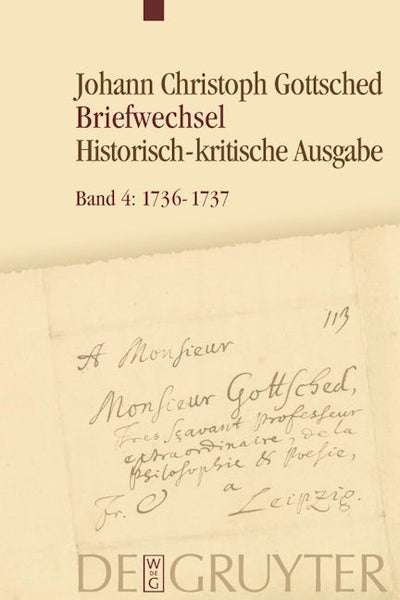 Johann Christoph Gottsched
Briefwechsel
Historisch-kritische Ausgabe
Band 4: 1736-1737
113
A Monsieur
Monsieur Gottsched,
Tres Sçavant Professeur
extraordinaire, de la
Philosophie & Poesie,
Fr. a
Leipzig.
DE GRUYTER
W
DE
G